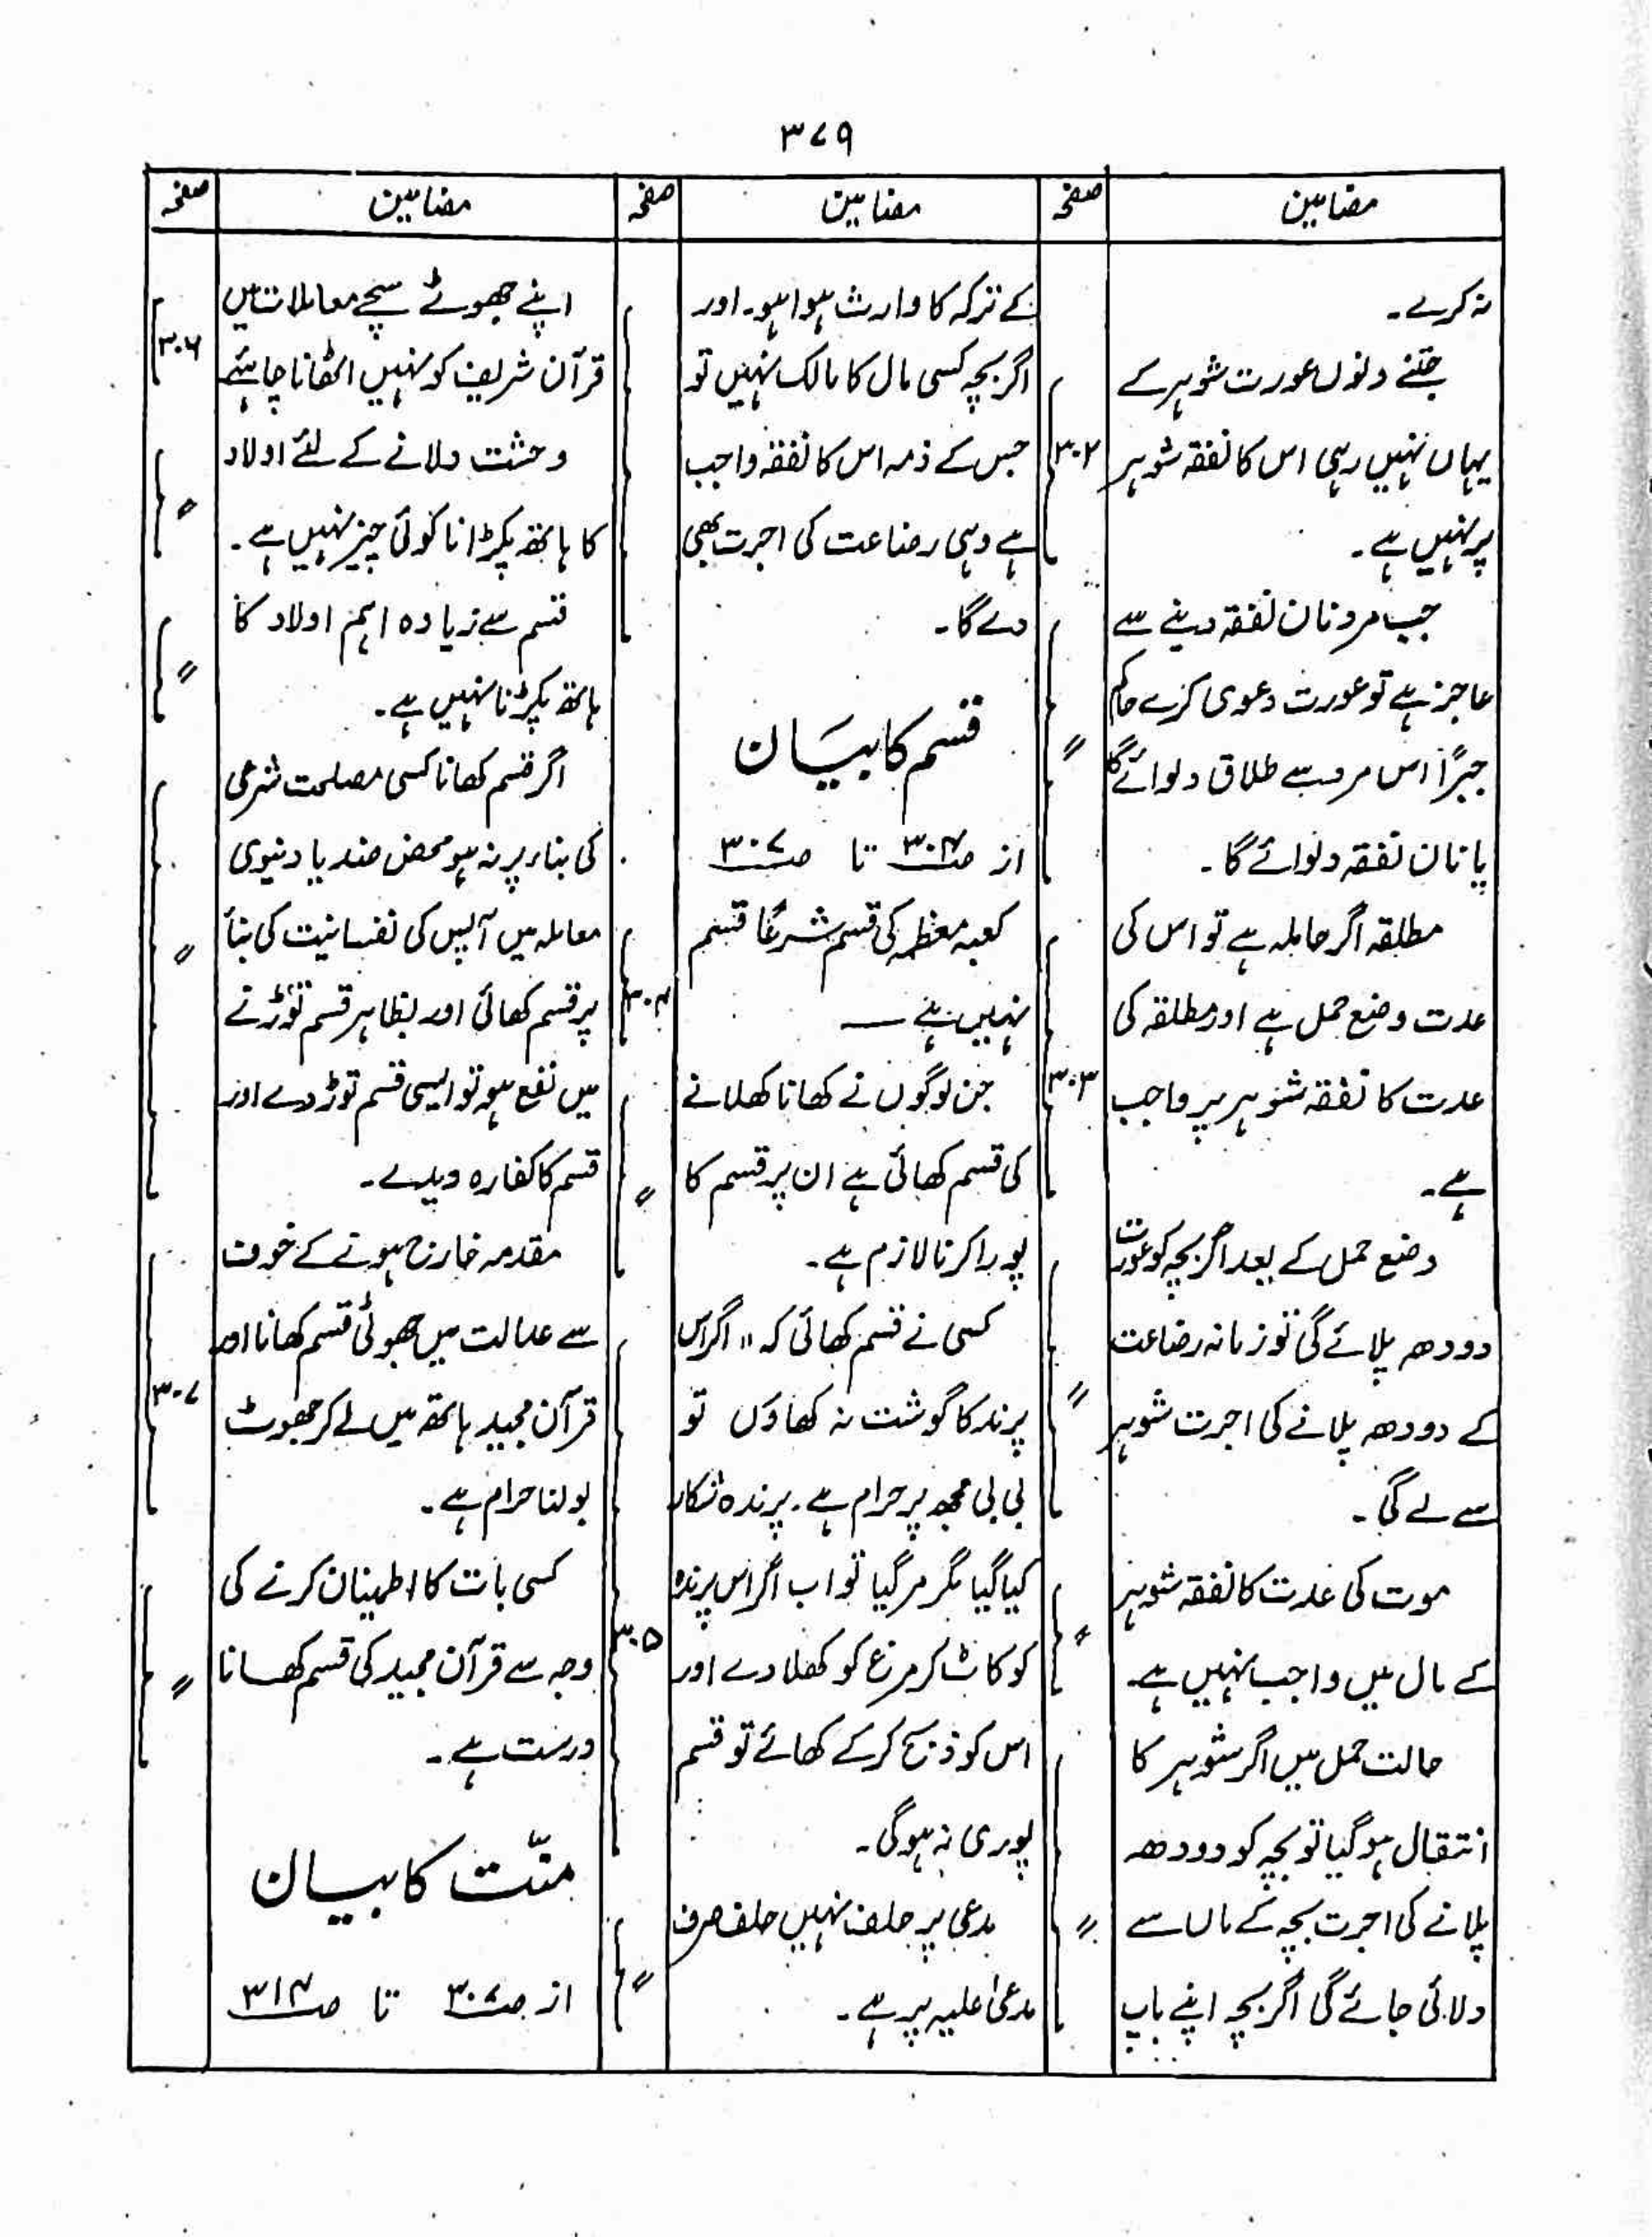 ۳۷۹
مضامین
صفحہ
نہ کرے۔
جتنے دنوں عورت شوہر کے
یہاں نہیں رہی اس کا نفقہ شوہر
۳۰۲
پر نہیں ہے۔
جب مرد نان نفقہ دینے سے
عاجز ہے تو عورت دعوی کرے حاکم
جبراً اس مرد سے طلاق دلوائے گا
〃
یا نان نفقہ دلوائے گا۔
مطلقہ اگر حاملہ ہے تو اس کی
عدت وضع حمل ہے اور مطلقہ کی
عدت کا نفقہ شوہر پر واجب
۳۰۳
ہے۔
وضع حمل کے بعد اگر بچہ کو عورت
دودھ پلائے گی تو زمانہ رضاعت
کے دودھ پلانے کی اجرت شوہر
〃
سے لے گی۔
موت کی عدت کا نفقہ شوہر
〃
کے مال میں واجب نہیں ہے۔
حالت حمل میں اگر شوہر کا
انتقال ہو گیا تو بچہ کو دودھ
پلانے کی اجرت بچہ کے ماں سے
〃
دلائی جائے گی اگر بچہ اپنے باپ
مضامین
صفحہ
کے ترکہ کا وارث ہوا ہو۔ اور
اگر بچہ کسی مال کا مالک نہیں تو
جس کے ذمہ اس کا نفقہ واجب
ہے وہی رضاعت کی اجرت بھی
دے گا۔
قسم کا بیَان
از صـ۳۰۴ تا صـ۳۰۷
کعبہ معظمہ کی قسم شرعًا قسم
نہیں ہے ــــ
۳۰۴
جن لوگوں نے کھانا کھلانے
کی قسم کھائی ہے ان پر قسم کا
〃
پورا کرنا لازم ہے۔
کسی نے قسم کھائی کہ "اگر اس
پرند کا گوشت نہ کھاوَں تو
بی بی مجھ پر حرام ہے۔ پرندہ شکار
کیا گیا مگر مر گیا تو اب اگر اس پرندہ
کو کاٹ کر مرغ کو کھلا دے اور
۳۰۵
اس کو ذبح کر کے کھائے تو قسم
پوری نہ ہوگی۔
مدعی پر حلف نہیں حلف صرف
مدعیٰ علیہ پر ہے۔
〃
مضامین
صفحہ
اپنے جھوٹے سچے معاملات میں
۳۰۶
قرآن شریف کو نہیں اٹھانا چاہئے
وحشت دلانے کے لئے اولاد
〃
کا ہاتھ پکڑانا کوئی چیز نہیں ہے۔
قسم سے زیادہ اہم اولاد کا
〃
ہاتھ پکڑنا نہیں ہے۔
اگر قسم کھانا کسی مصلحت شرعی
کی بناء پر نہ ہو محض ضد یا دنیوی
معاملہ میں آپس کی نفسانیت کی بنأ
〃
پر قسم کھائی اور بظاہر قسم توڑنے
میں نفع ہو تو ایسی قسم توڑ دے اور
قسم کا کفارہ دیدے۔
مقدمہ خارج ہونے کے خوف
سے عدالت میں جھوٹی قسم کھانا اور
۳۰۷
قرآن مجید ہاتھ میں لے کر جھوٹ
بولنا حرام ہے۔
کسی بات کا اطمینان کرنے کی
وجہ سے قرآن مجید کی قسم کھانا
〃
درست ہے۔
منّت کا بیان
از صـ۳۰۷ تا صـ۳۱۴